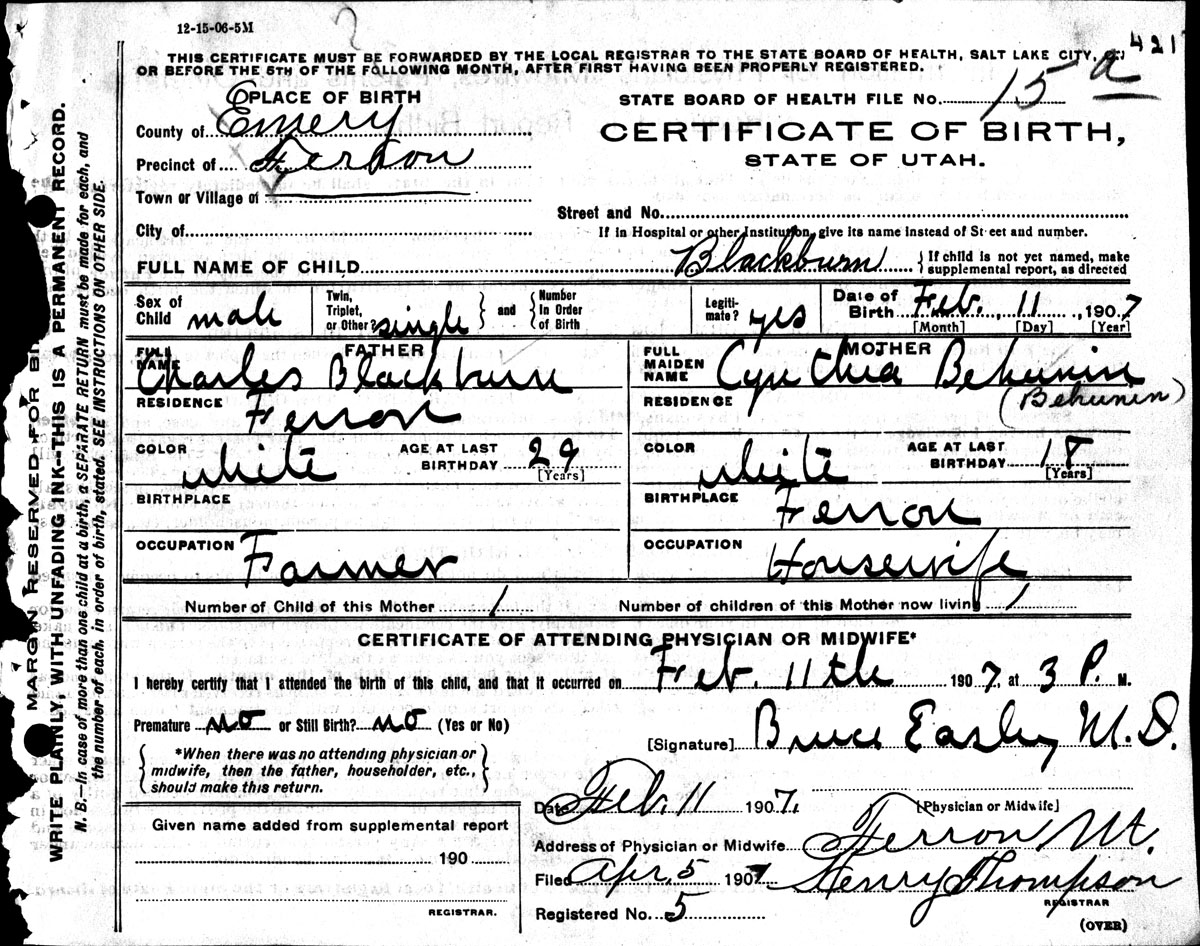 12-15-06-5M
421
THIS CERTIFICATE MUST BE FORWARDED BY THE LOCAL REGISTRAR TO THE STATE BOARD OF HEALTH, SALT LAKE CITY,
OR BEFORE THE 5TH OF THE FOLLOWING MONTH, AFTER FIRST HAVING BEEN PROPERLY REGISTERED.
PLACE OF BIRTH
County of Emery
Precinct of Ferron
Town or Village of
City of
STATE BOARD OF HEALTH FILE No. 15 a
CERTIFICATE OF BIRTH,
STATE OF UTAH.
Street and No.
If in Hospital or other Institution, give its name instead of Street and number.
FULL NAME OF CHILD Blackburn { If child is not yet named, make
supplemental report, as directed
Sex of Child male
Twin, Triplet, or Other? single } and { Number In Order of Birth
Legitimate? yes
Date of Birth Feb. 11, 1907
[Month] [Day] [Year]
FATHER
FULL NAME Charles Blackburn
RESIDENCE Ferron
COLOR white AGE AT LAST BIRTHDAY 29
[Years]
BIRTHPLACE
OCCUPATION Farmer
MOTHER
FULL MAIDEN NAME Cynthia Behunin
RESIDENCE (Behunin)
COLOR white AGE AT LAST BIRTHDAY 18
[Years]
BIRTHPLACE Ferron
OCCUPATION Housewife
Number of Child of this Mother 1 Number of children of this Mother now living 1
CERTIFICATE OF ATTENDING PHYSICIAN OR MIDWIFE*
I hereby certify that I attended the birth of this child, and that it occurred on Feb. 11th 1907, at 3 P. M.
Premature no or Still Birth? no (Yes or No)
[Signature] Bruce Easley M.D.
{ *When there was no attending physician or
midwife, then the father, householder, etc.,
should make this return. }
Date Feb. 11 1907. [Physician or Midwife]
Given name added from supplemental report
190
REGISTRAR.
Address of Physician or Midwife Ferron Ut.
Filed Apr. 5 1907 Henry Thompson
REGISTRAR
Registered No. 5
(OVER)
MARGIN RESERVED FOR
WRITE PLAINLY, WITH UNFADING INK--THIS IS A PERMANENT RECORD.
N. B.—In case of more than one child at a birth, a SEPARATE RETURN must be made for each, and
the number of each, in order of birth, stated. SEE INSTRUCTIONS ON OTHER SIDE.